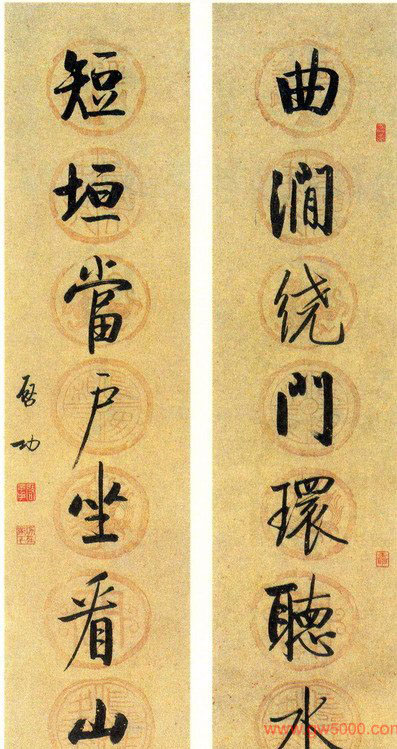 曲澗绕門環聽水
短垣當户坐看山
啓功
www.gw5000.com